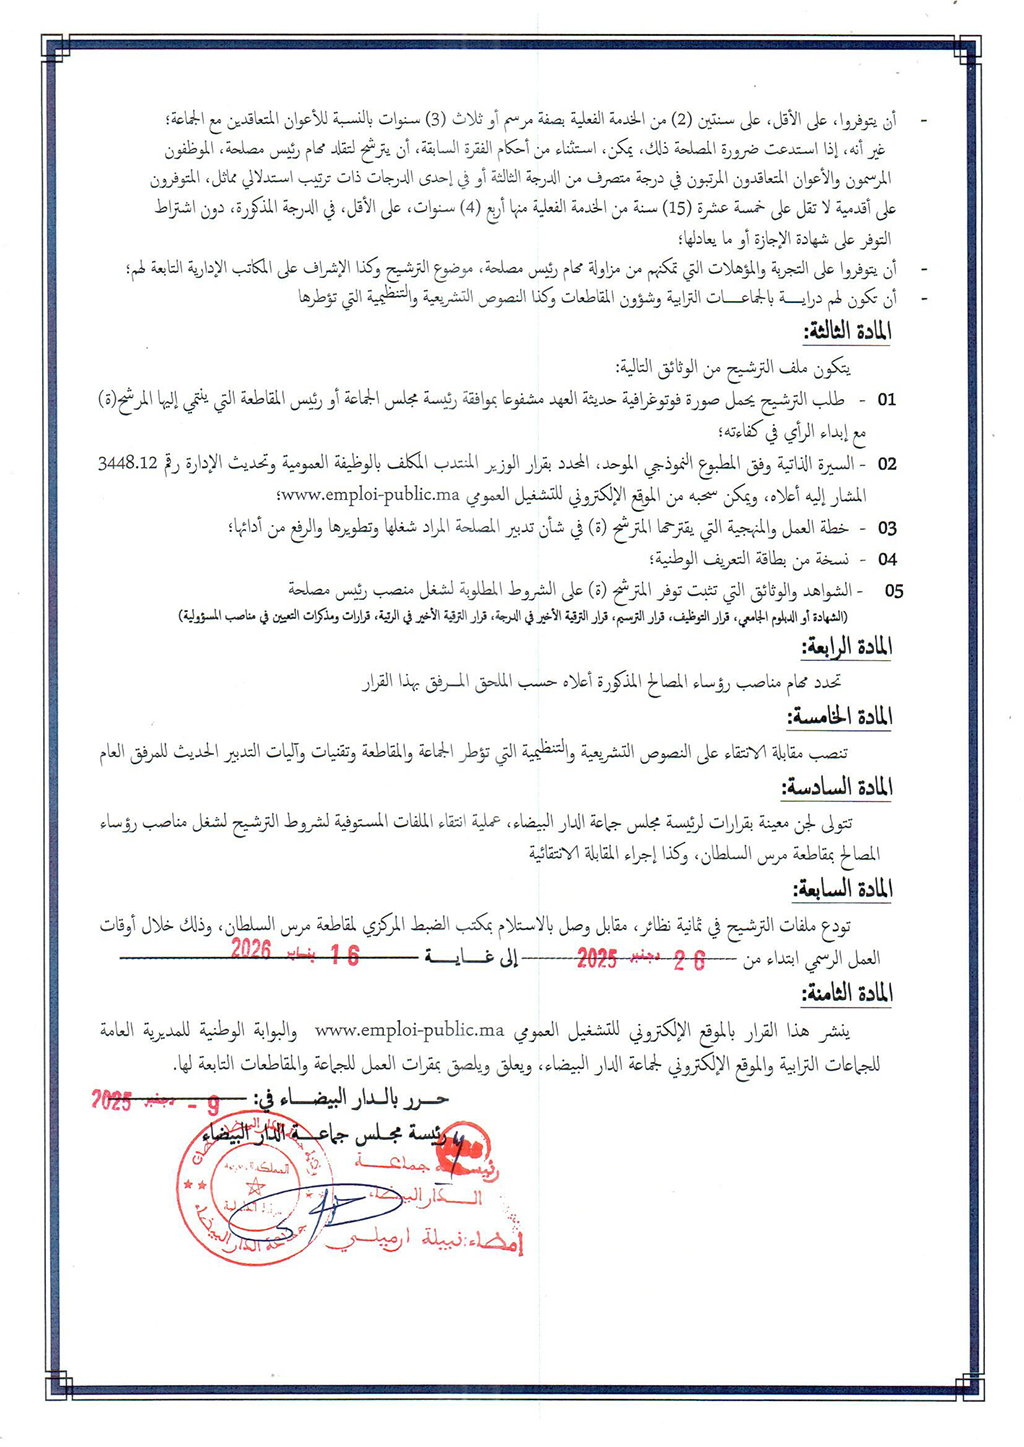 - أن يتوفروا، على الأقل، على سنتين (2) من الخدمة الفعلية بصفة مرسم أو ثلاث (3) سنوات بالنسبة للأعوان المتعاقدين مع الجماعة؛
غير أنه، إذا استدعت ضرورة المصلحة ذلك، يمكن، استثناء من أحكام الفقرة السابقة، أن يترشح لتقلد مهام رئيس مصلحة، الموظفون
المرسمون والأعوان المتعاقدون المرتبون في درجة متصرف من الدرجة الثالثة أو في إحدى الدرجات ذات ترتيب استدلالي مماثل، المتوفرون
على أقدمية لا تقل على خمسة عشرة (15) سنة من الخدمة الفعلية منها أربع (4) سنوات، على الأقل، في الدرجة المذكورة، دون اشتراط
التوفر على شهادة الإجازة أو ما يعادلها؛
- أن يتوفروا على التجربة والمؤهلات التي تمكنهم من مزاولة مهام رئيس مصلحة، موضوع الترشيح وكذا الإشراف على المكاتب الإدارية التابعة لهم؛
- أن تكون لهم درايـــة بالجماعـــات الترابية وشؤون المقاطعات وكذا النصوص التشريعية والتنظيمية التي تؤطرها
المادة الثالثة:
يتكون ملف الترشيح من الوثائق التالية:
01 - طلب الترشيح يحمل صورة فوتوغرافية حديثة العهد مشفوعا بموافقة رئيسة مجلس الجماعة أو رئيس المقاطعة التي ينتمي إليها المرشح(ة)
مع إبداء الرأي في كفاءته؛
02 - السيرة الذاتية وفق المطبوع النموذجي الموحد، المحدد بقرار الوزير المنتدب المكلف بالوظيفة العمومية وتحديث الإدارة رقم 3448.12
المشار إليه أعلاه، ويمكن سحبه من الموقع الإلكتروني للتشغيل العمومي www.emploi-public.ma؛
03 - خطة العمل والمنهجية التي يقترحها المترشح (ة) في شأن تدبير المصلحة المراد شغلها وتطويرها والرفع من أدائها؛
04 - نسخة من بطاقة التعريف الوطنية؛
05 - الشواهد والوثائق التي تثبت توفر المترشح (ة) على الشروط المطلوبة لشغل منصب رئيس مصلحة
(الشهادة أو الدبلوم الجامعي، قرار التوظيف، قرار الترسيم، قرار الترقية الأخير في الدرجة، قرار الترقية الأخير في الرتبة، قرارات ومذكرات التعيين في مناصب المسؤولية)
المادة الرابعة:
تحدد مهام مناصب رؤساء المصالح المذكورة أعلاه حسب الملحق المـــرفق بهذا القرار
المادة الخامسة:
تنصب مقابلة الانتقاء على النصوص التشريعية والتنظيمية التي تؤطر الجماعة والمقاطعة وتقنيات وآليات التدبير الحديث للمرفق العام
المادة السادسة:
تتولى لجن معينة بقرارات لرئيسة مجلس جماعة الدار البيضاء، عملية انتقاء الملفات المستوفية لشروط الترشيح لشغل مناصب رؤساء
المصالح بمقاطعة مرس السلطان، وكذا إجراء المقابلة الانتقائية
المادة السابعة:
تودع ملفات الترشيح في ثمانية نظائر، مقابل وصل بالاستلام بمكتب الضبط المركزي لمقاطعة مرس السلطان، وذلك خلال أوقات
العمل الرسمي ابتداء من 26 دجنبر 2025 إلى غـــايـــة 16 يناير 2026
المادة الثامنة:
ينشر هذا القرار بالموقع الإلكتروني للتشغيل العمومي www.emploi-public.ma والبوابة الوطنية للمديرية العامة
للجماعات الترابية والموقع الإلكتروني لجماعة الدار البيضاء، ويعلق ويلصق بمقرات العمل للجماعة والمقاطعات التابعة لها.
حـــرر بالـدار البيضـــاء في: 9 - دجنبر 2025
رئيسة مجلس جماعـــة الدار البيضاء
رئيســـة جماعـــة
الـــدار البيضاء
إمضاء: نبيلة ارميلـــي
المملكة المغربية
جماعة الدار البيضاء